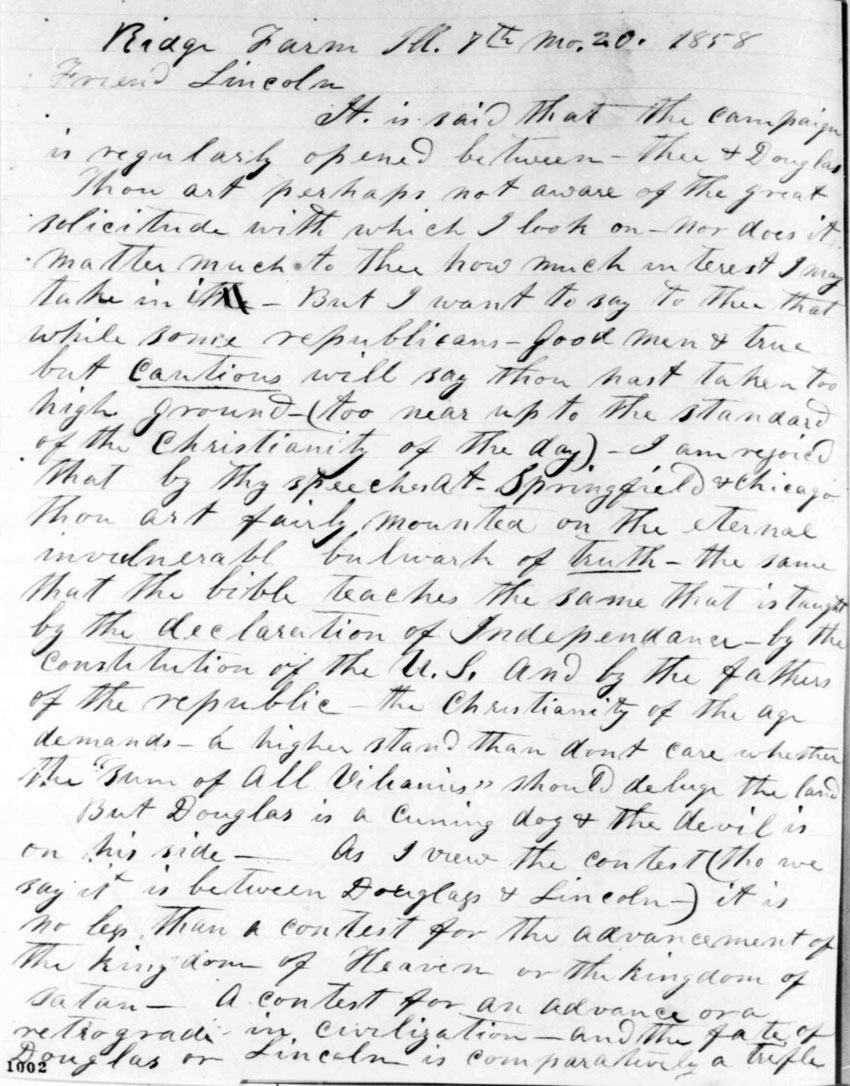 Ridge Farm Ill. 7th mo. 20. 1858
Friend Lincoln
It is said that the campaign
is regularly opened between - thee & Douglas
Thou art perhaps not aware of the great
solicitude with which I look on - nor does it
matter much to thee how much interest I may
take in it - But I want to say to thee that
while some republicans - good men & true
but cautious will say thou hast taken too
high ground - (too near up to the standard
of the Christianity of the day) - I am rejoiced
that by thy speeches at - Springfield & Chicago
thou art fairly mounted on the eternal
invulnerabl bulwark of truth - the same
that the bible teaches the same that is taught
by the declaration of Independance - by the
constitution of the U. S. and by the fathers
of the republic - the Christianity of the age
demands - a higher stand than dont care whether
the "sum of all Vilianis" should deluge the land
But Douglas is a cuning dog & the devil is
on his side — As I view the contest (tho we
say it is between Douglass & Lincoln -) it is
no less than a contest for the advancement of
the kingdom of Heaven or the kingdom of
satan - A contest for an advance or a
retrograde in civilization - and the fate of
Douglas or Lincoln is comparatively a trifle
1002